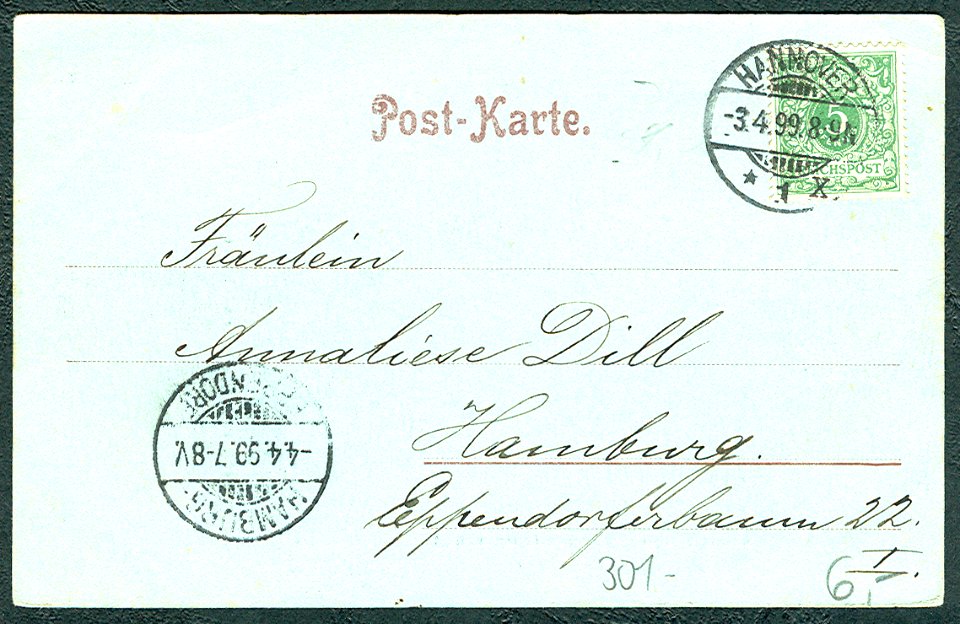 Post-Karte.
HANNOVER
-3.4.99.8-9N.
* 1 X.
5
REICHSPOST
Fräulein
Annaliese Dill
Hamburg.
Eppendorferbaum 22.
I.
HAMBURG-
-4.4.99.7-8V.
EPPENDORF
301-
6